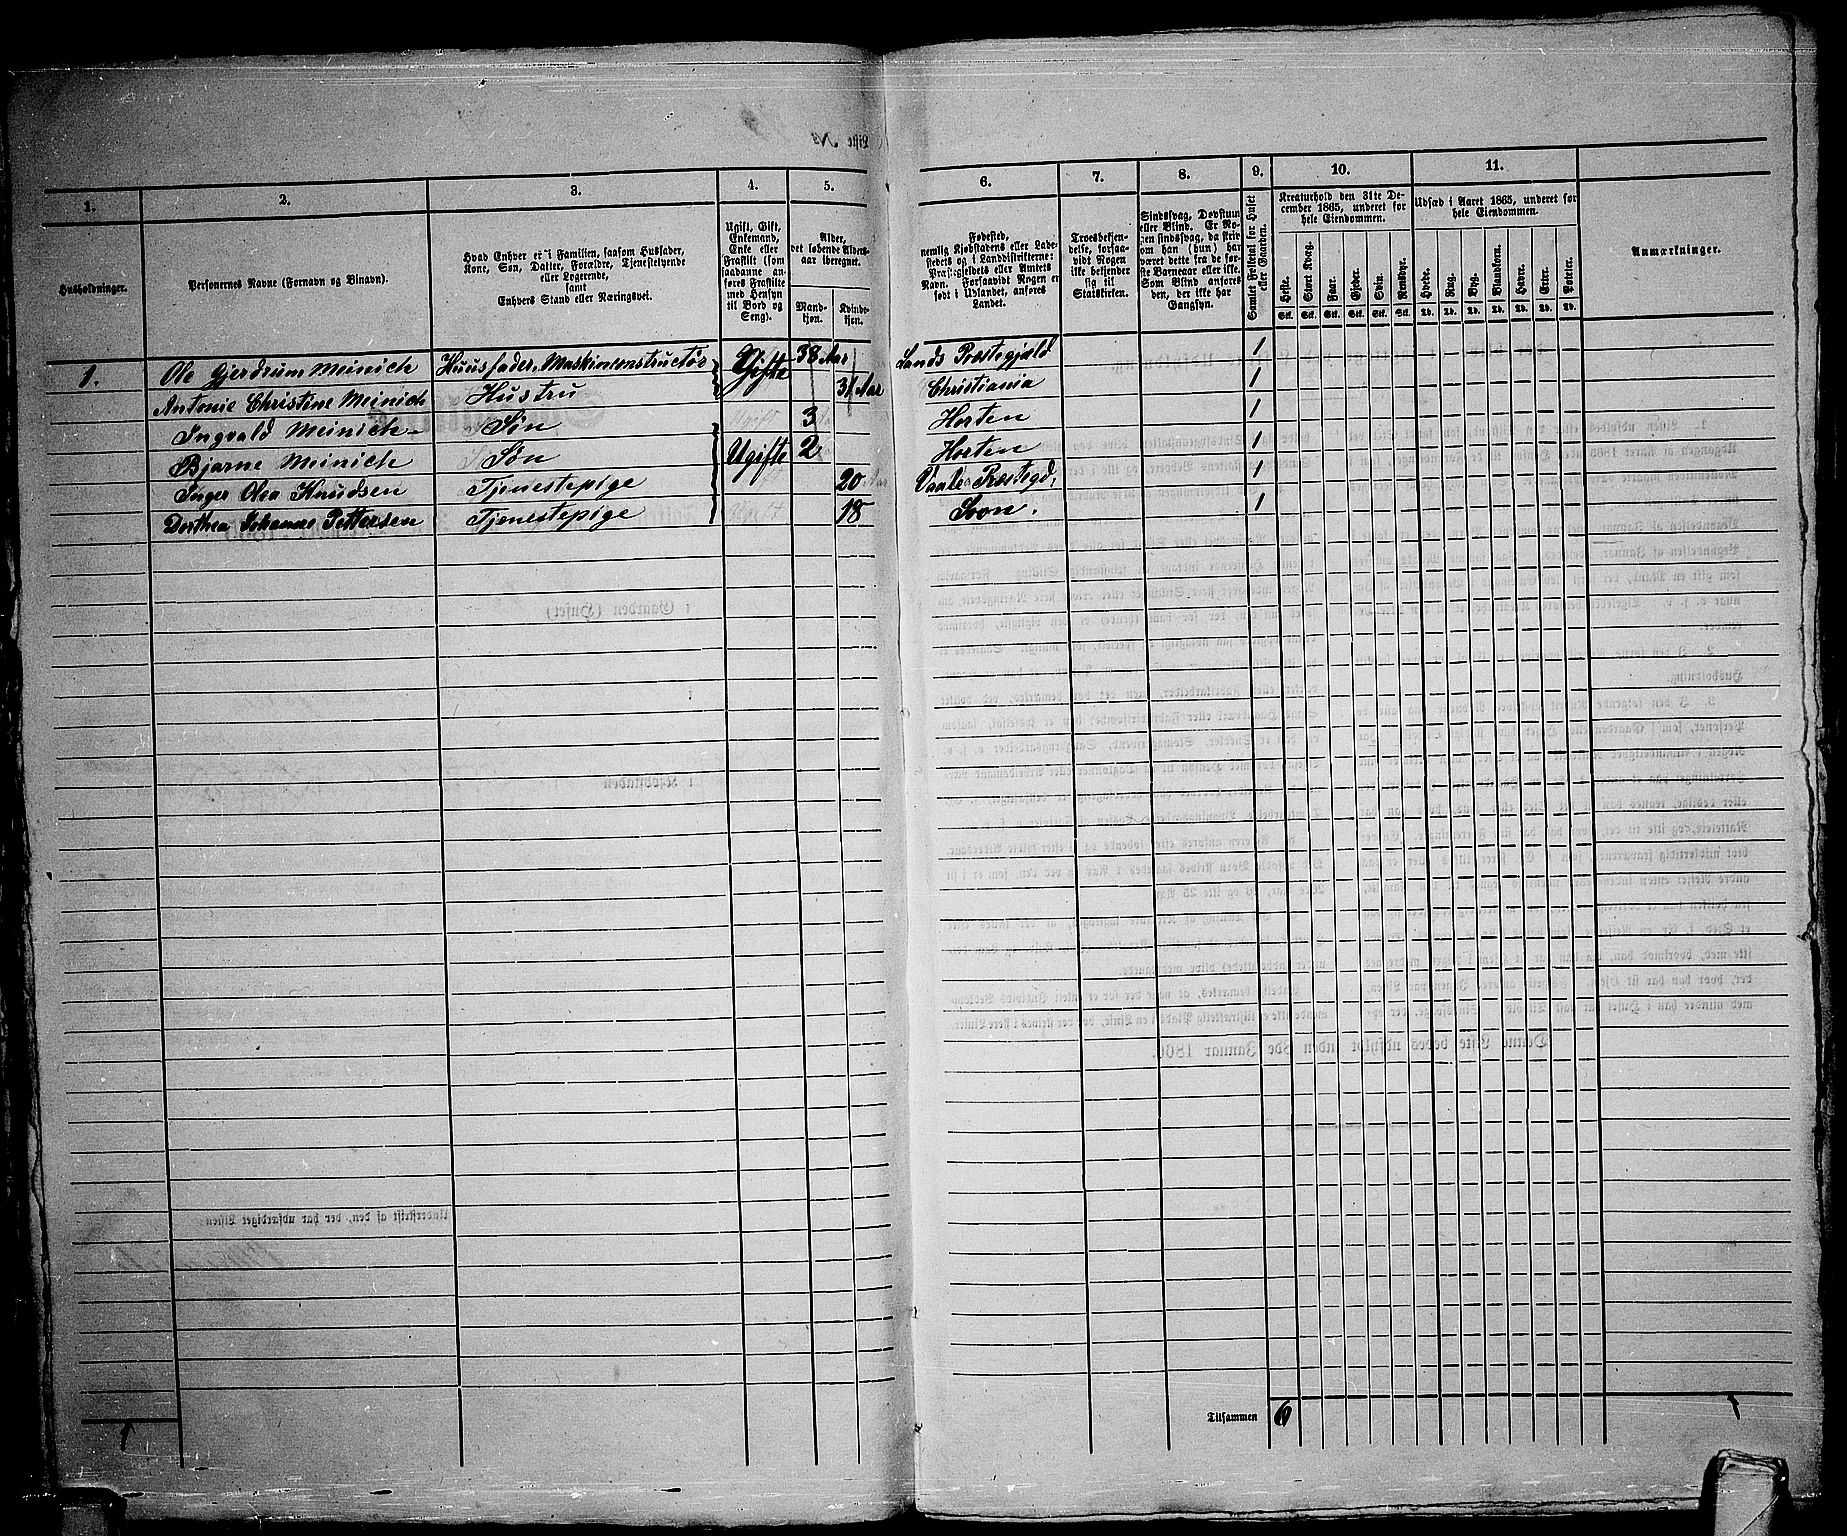 Liste №
1. 2. 3. 4. 5. 6. 7. 8. 9. 10. 11.
Husholdninger.
Personernes Navne (Fornavn og Binavn).
Hvad Enhver er i Familien, saasom Husfader,
Kone, Søn, Datter, Forældre, Tjenestetyende
eller Logerende,
samt
Enhvers Stand eller Næringsvei.
Ugift, Gift,
Enkemand,
Enke eller
Fraskilt (som
saadanne an-
føres Fraskilte
med Hensyn
til Bord og
Seng).
Alder,
det løbende Alders-
aar iberegnet.
Mand-
kjøn.
Kvinde-
kjøn.
Fødested,
nemlig Kjøbstadens eller Lade-
stedets og i Landdistrikterne:
Præstegjeldets eller Amtets
Navn. Forsaavidt Nogen er
født i Udlandet, anføres
Landet.
Troesbekjen-
delse, forsaa-
vidt Nogen
ikke bekjender
sig til
Statskirken.
Sindssvag, Døvstum
eller Blind. Er No-
gen sindssvag, da skriv
om han (hun) har
været dette fra de før-
ste Barneaar eller ikke.
Som Blind anføres
den, der ikke har
Gangsyn.
Samlet Folketal for Huset
eller Gaarden.
Kreaturhold den 31te De-
cember 1865, underet for
hele Eiendommen.
Heste. Stort Kvæg. Faar. Gjeder. Svin. Rensdyr.
Stk. Stk. Stk. Stk. Stk. Stk.
Udsæd i Aaret 1865, underet for
hele Eiendommen.
Hvede. Rug. Byg. Blandkorn. Havre. Erter. Poteter.
Td. Td. Td. Td. Td. Td. Td.
Anmærkninger.
1. Ole Gjerdrum Meinich Huusfader, Maskinconstructør Gifte 38 Aar Lands Præstegjæld 1
Antonie Christine Meinich Hustru 31 Aar Christiania 1
Ingvald Meinich Søn 3 Horten 1
Bjarne Meinich Søn Ugifte 2 Horten 1
Inger Olea Knudsen Tjenestepige 20 Vaale Præstegd. 1
Dorthea Johanne Pettersen Tjenestepige 18 Soon. 1
Tilsammen 6